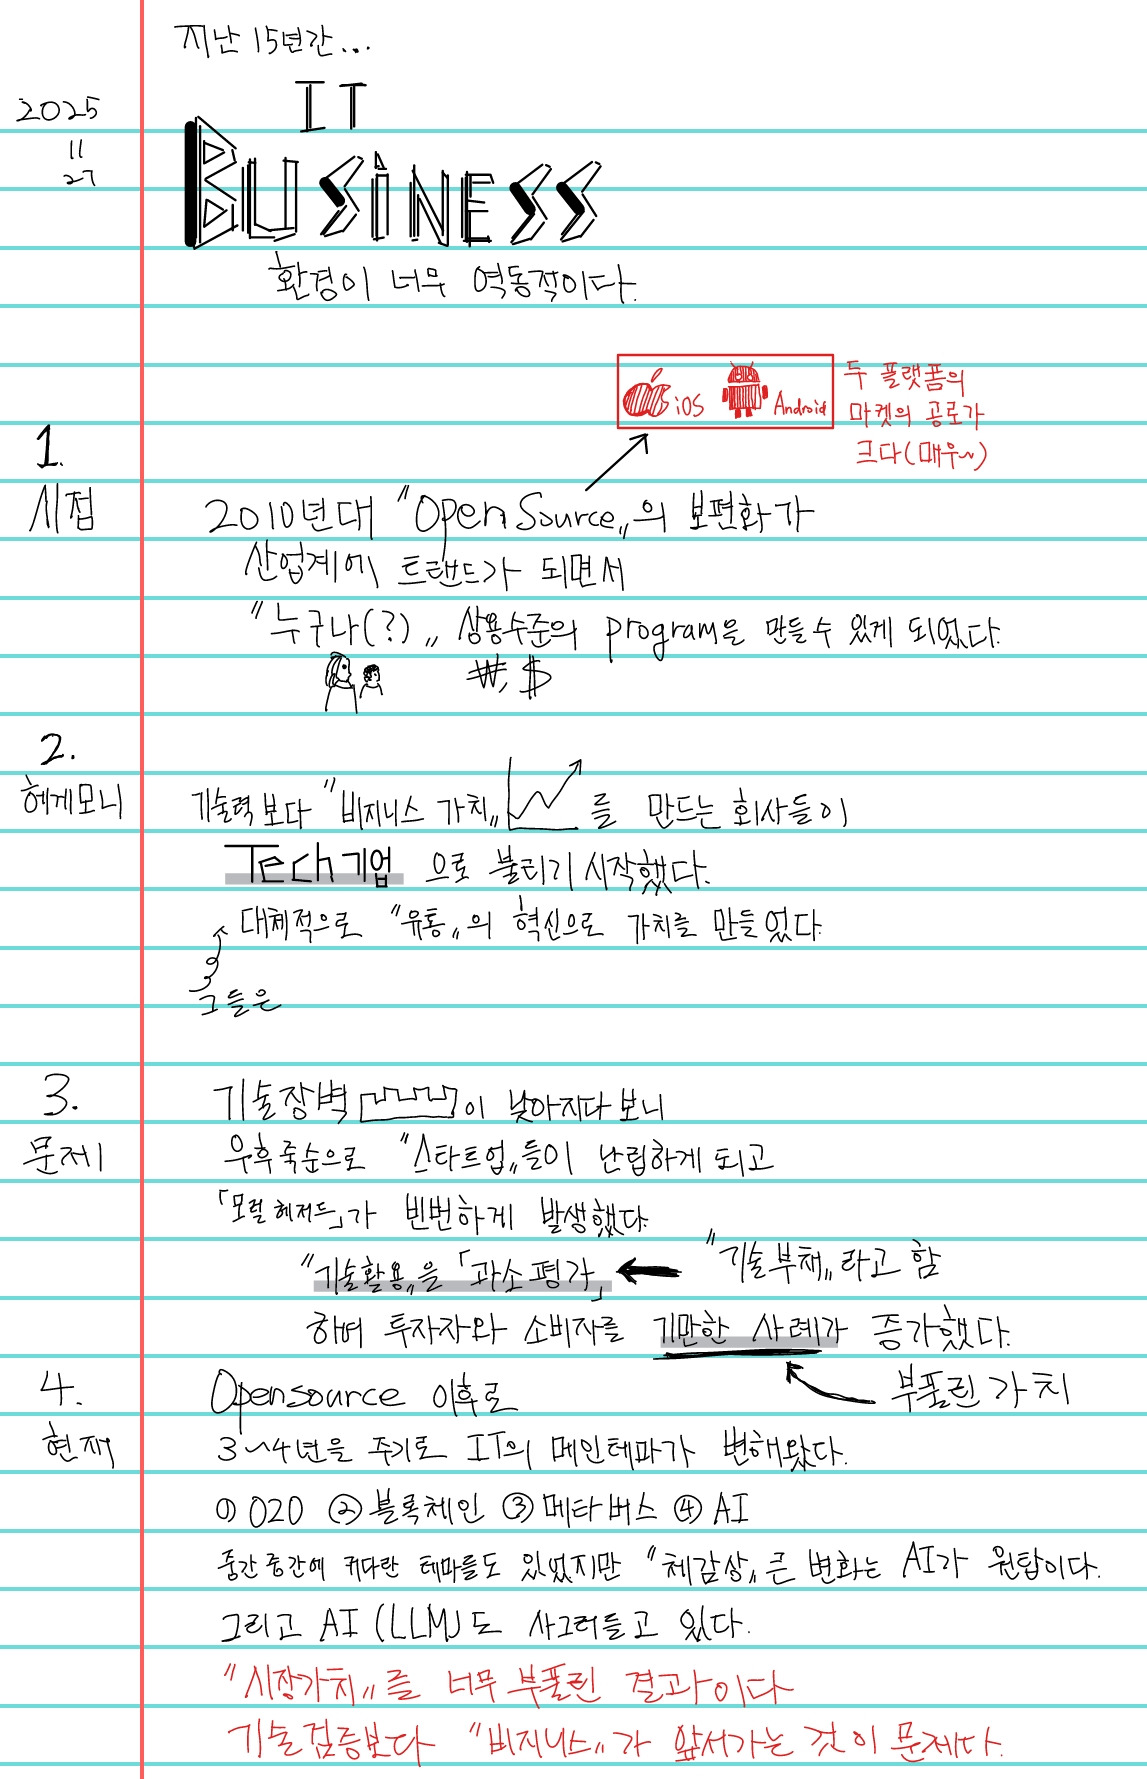 지난 15년간...
2025
11
27
IT
BUSiNESS
환경이 너무 역동적이다.
iOS Android
두 플랫폼의
마켓의 공로가
크다(매우~)
1.
시점
2010년대 "OpenSource"의 보편화가
산업계에 트랜드가 되면서
"누구나(?)" 상용수준의 program을 만들수 있게 되었다.
₩, $
2.
헤게모니
기술력보다 "비지니스 가치"를 만드는 회사들이
Tech기업으로 불리기 시작했다.
대체적으로 "유통"의 혁신으로 가치를 만들었다.
그들은
3.
문제
기술장벽이 낮아지다보니
우후죽순으로 "스타트업"들이 난립하게 되고
「모럴헤저드」가 빈번하게 발생했다
"기술활용"을 「과소평가」 "기술부채"라고 함
하며 투자자와 소비자를 기만한 사례가 증가했다.
부풀린 가치
4.
현재
Opensource 이후로
3~4년을 주기로 IT의 메인테마가 변해왔다.
① O2O ② 블록체인 ③ 메타버스 ④ AI
중간중간에 커다란 테마들도 있었지만 "체감상" 큰 변화는 AI가 원탑이다.
그리고 AI (LLM)도 사그러들고 있다.
"시장가치"를 너무 부풀린 결과이다
기술검증보다 "비지니스"가 앞서가는 것이 문제다.